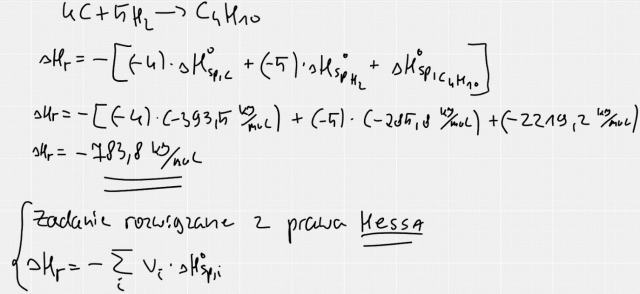 4C+5H₂ → C₄H₁₀
ΔHr = -[(-4)·ΔH°sp,C + (-5)·ΔH°sp,H₂ + ΔH°sp,C₄H₁₀]
ΔHr = -[(-4)·(-393,5 kJ/mol) + (-5)·(-285,8 kJ/mol) + (-2219,2 kJ/mol)
ΔHr = -783,8 kJ/mol
Zadanie rozwiązane z prawa HessA
ΔHr = - ∑i νi · ΔH°sp,i